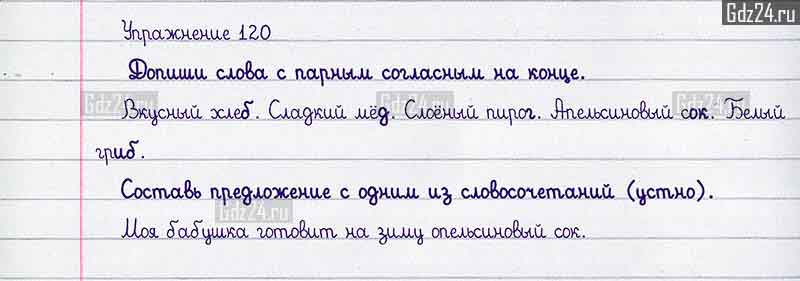 Gdz24.ru
Упражнение 120
Допиши слова с парным согласным на конце.
Gdz24.ru Gdz24.ru
Вкусный хлеб. Сладкий мёд. Слоёный пирог. Апельсиновый сок. Белый
гриб.
Составь предложение с одним из словосочетаний (устно).
Gdz24.ru
Моя бабушка готовит на зиму опельсиновый сок.